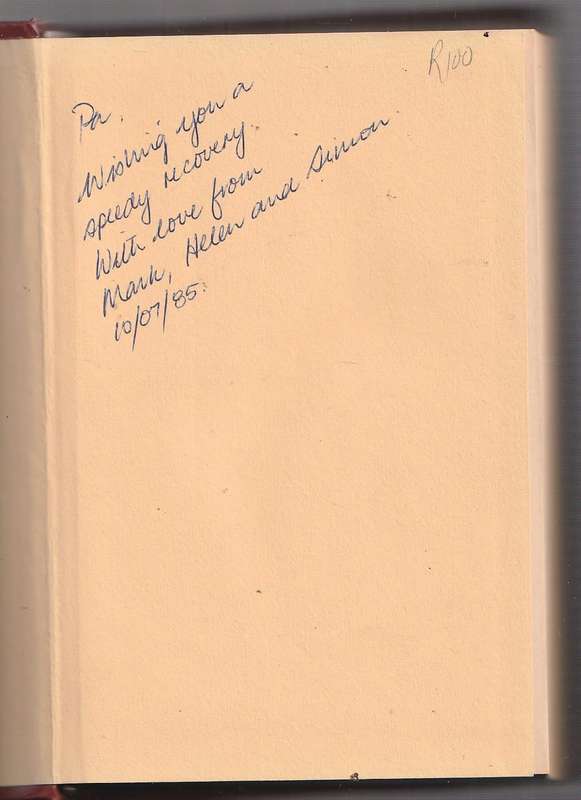 R100
Pa.
Wishing you a
speedy recovery.
With love from
Mark, Helen and Simon.
10/07/85.